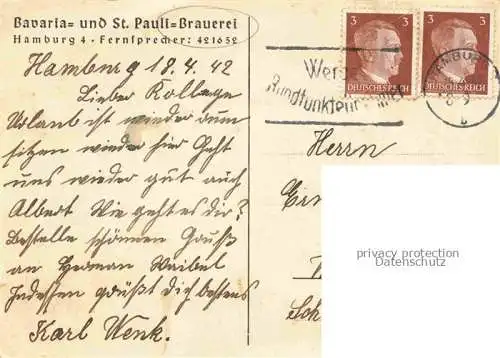 Bavaria= und St. Pauli=Brauerei
Hamburg 4 · Fernsprecher: 421652
Hamburg 18.4.42
Lieber Kollege
Urlaub ist wieder rum
sitzen wieder hier Geht
uns wieder gut auch
Albert Wie geht es dir?
Bestelle schönen Gruß
an Herman Waibel
Indessen grüßt dich bestens
Karl Wenk.
3 3
DEUTSCHES REICH DEUTSCHES REICH
Rundfunkteilnehmer
Herrn
privacy protection
Datenschutz